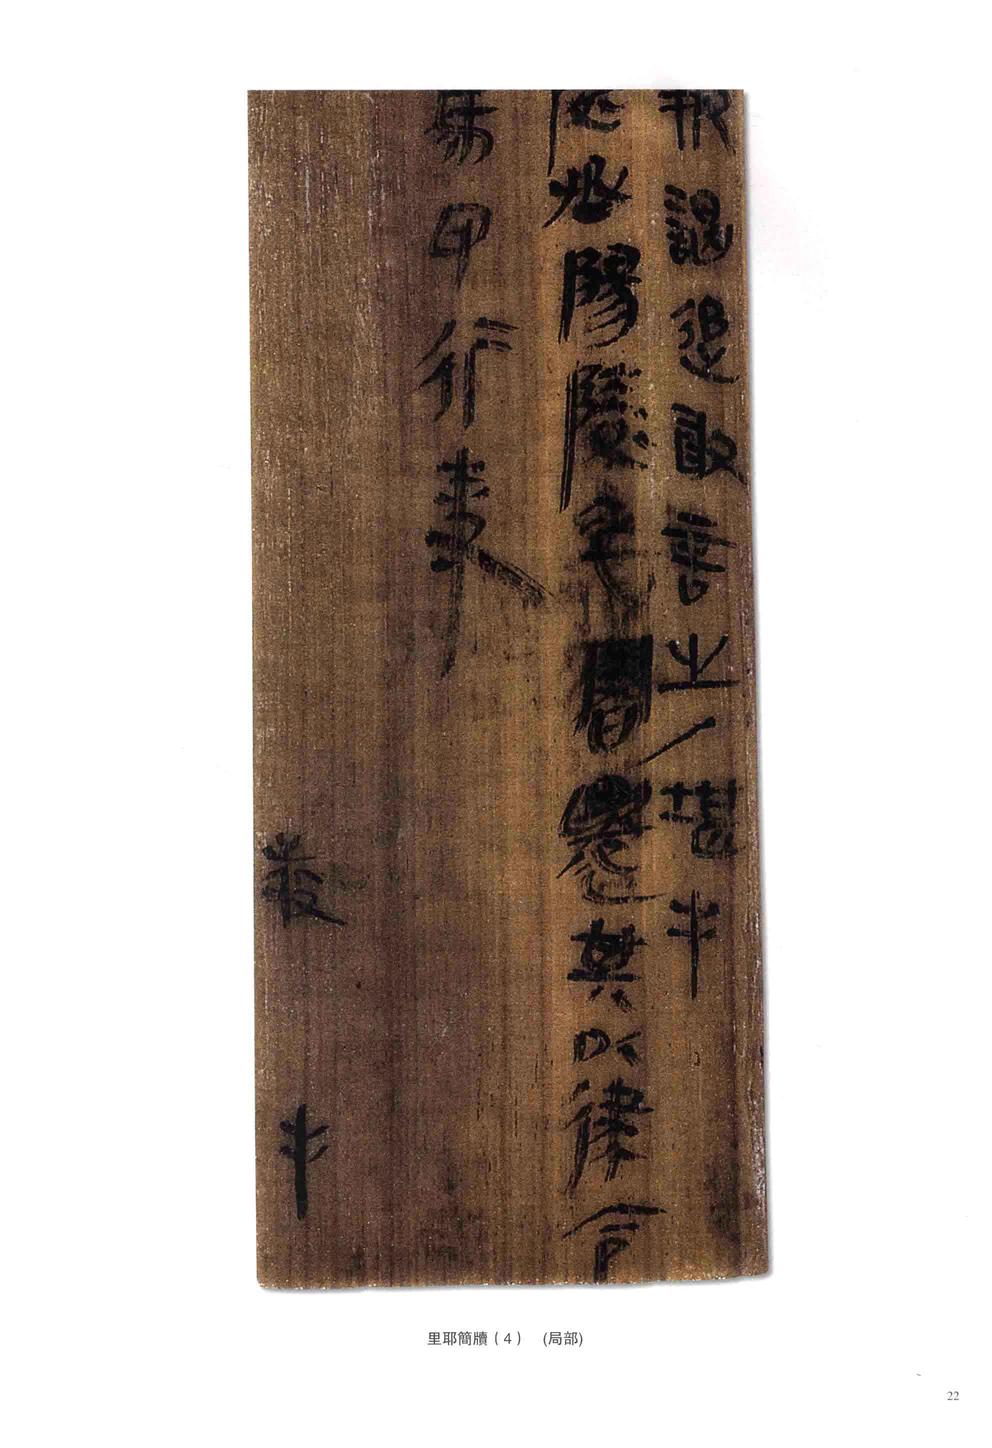 報謁追敢言之/堪手
陵丞陽陵卒署遷其以律令
馬印行事
敬手
里耶簡牘（4） (局部)
22